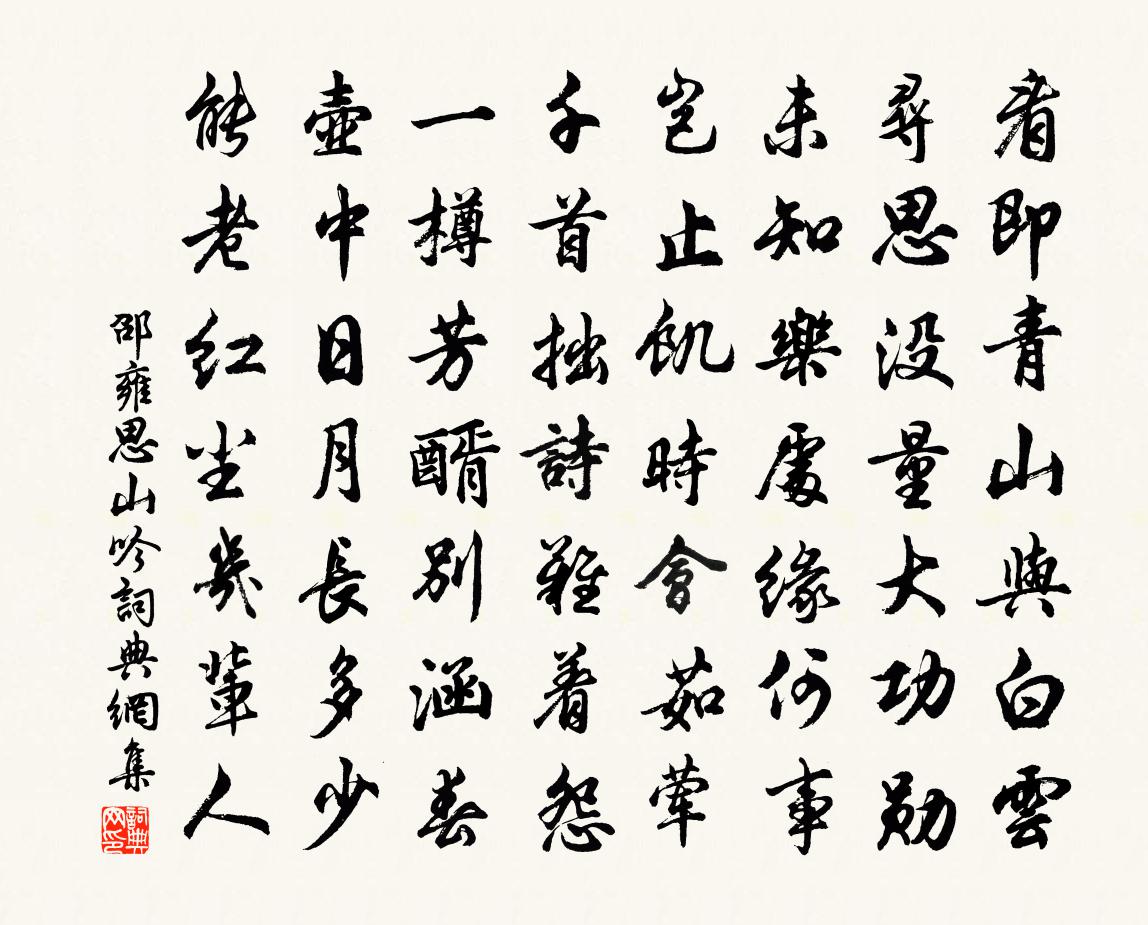 看即青山與白雲
尋思没量大功勋
未知樂處緣何事
豈止飢時會茹葷
千首拙詩難着怨
一樽芳醑別涵春
壺中日月長多少
能老红尘幾輩人
邵雍思山吟詞典網集
詞典网印